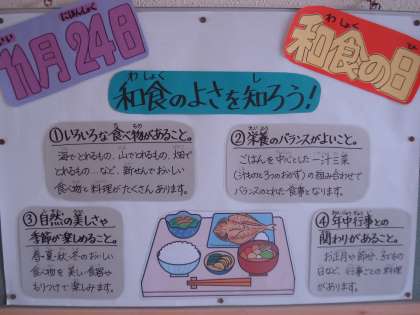 11月24日
和食の日
和食のよさを知ろう!
①いろいろな食べ物があること。
海でとれるもの、山でとれるもの、畑で
とれるもの…など、新せんでおいしい
食べ物と料理がたくさんあります。
②栄養のバランスがよいこと。
ごはんを中心とした一汁三菜
(汁ものと3つのおかず)の組み合わせで
バランスのとれた食事となります。
③自然の美しさや
季節が楽しめること。
春・夏・秋・冬のおいしい
食べ物を美しい食器や
もりつけで楽しみます。
④年中行事との
関わりがあること。
お正月や節分、子どもの
日など、行事ごとの料理
があります。